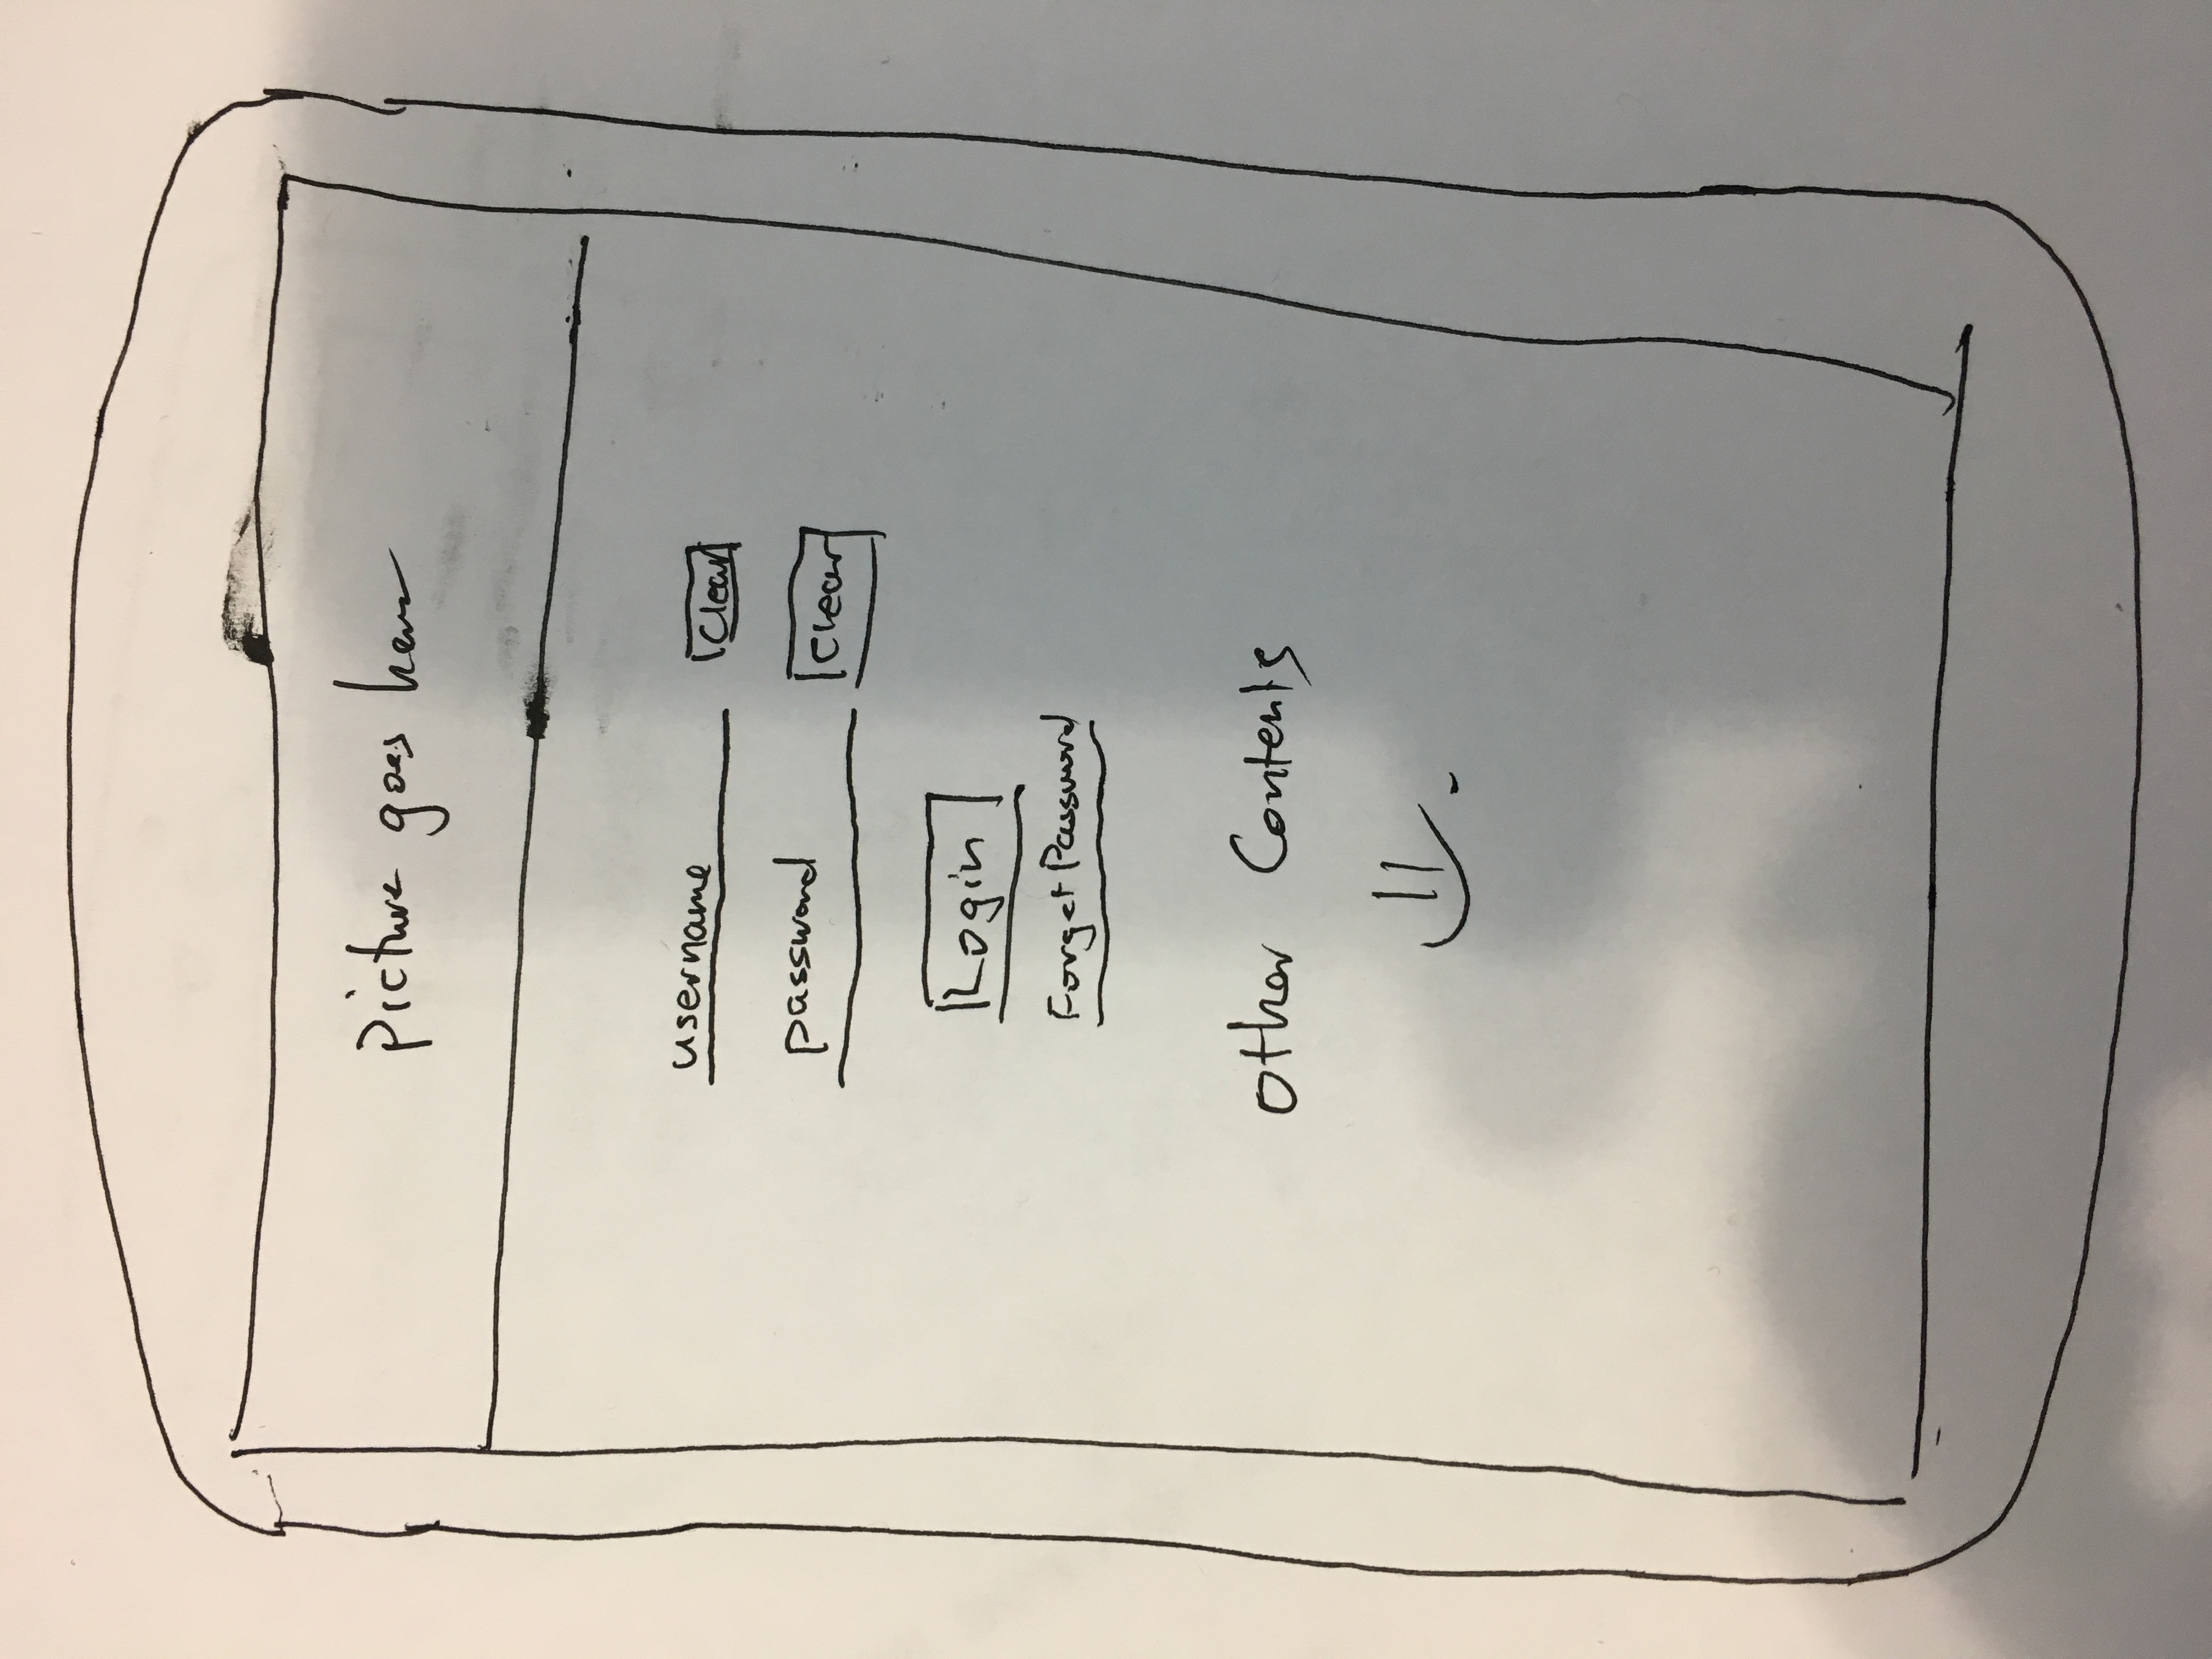 picture goes here
username
Clear
password
Clear
Login
Forget Password
other Contents